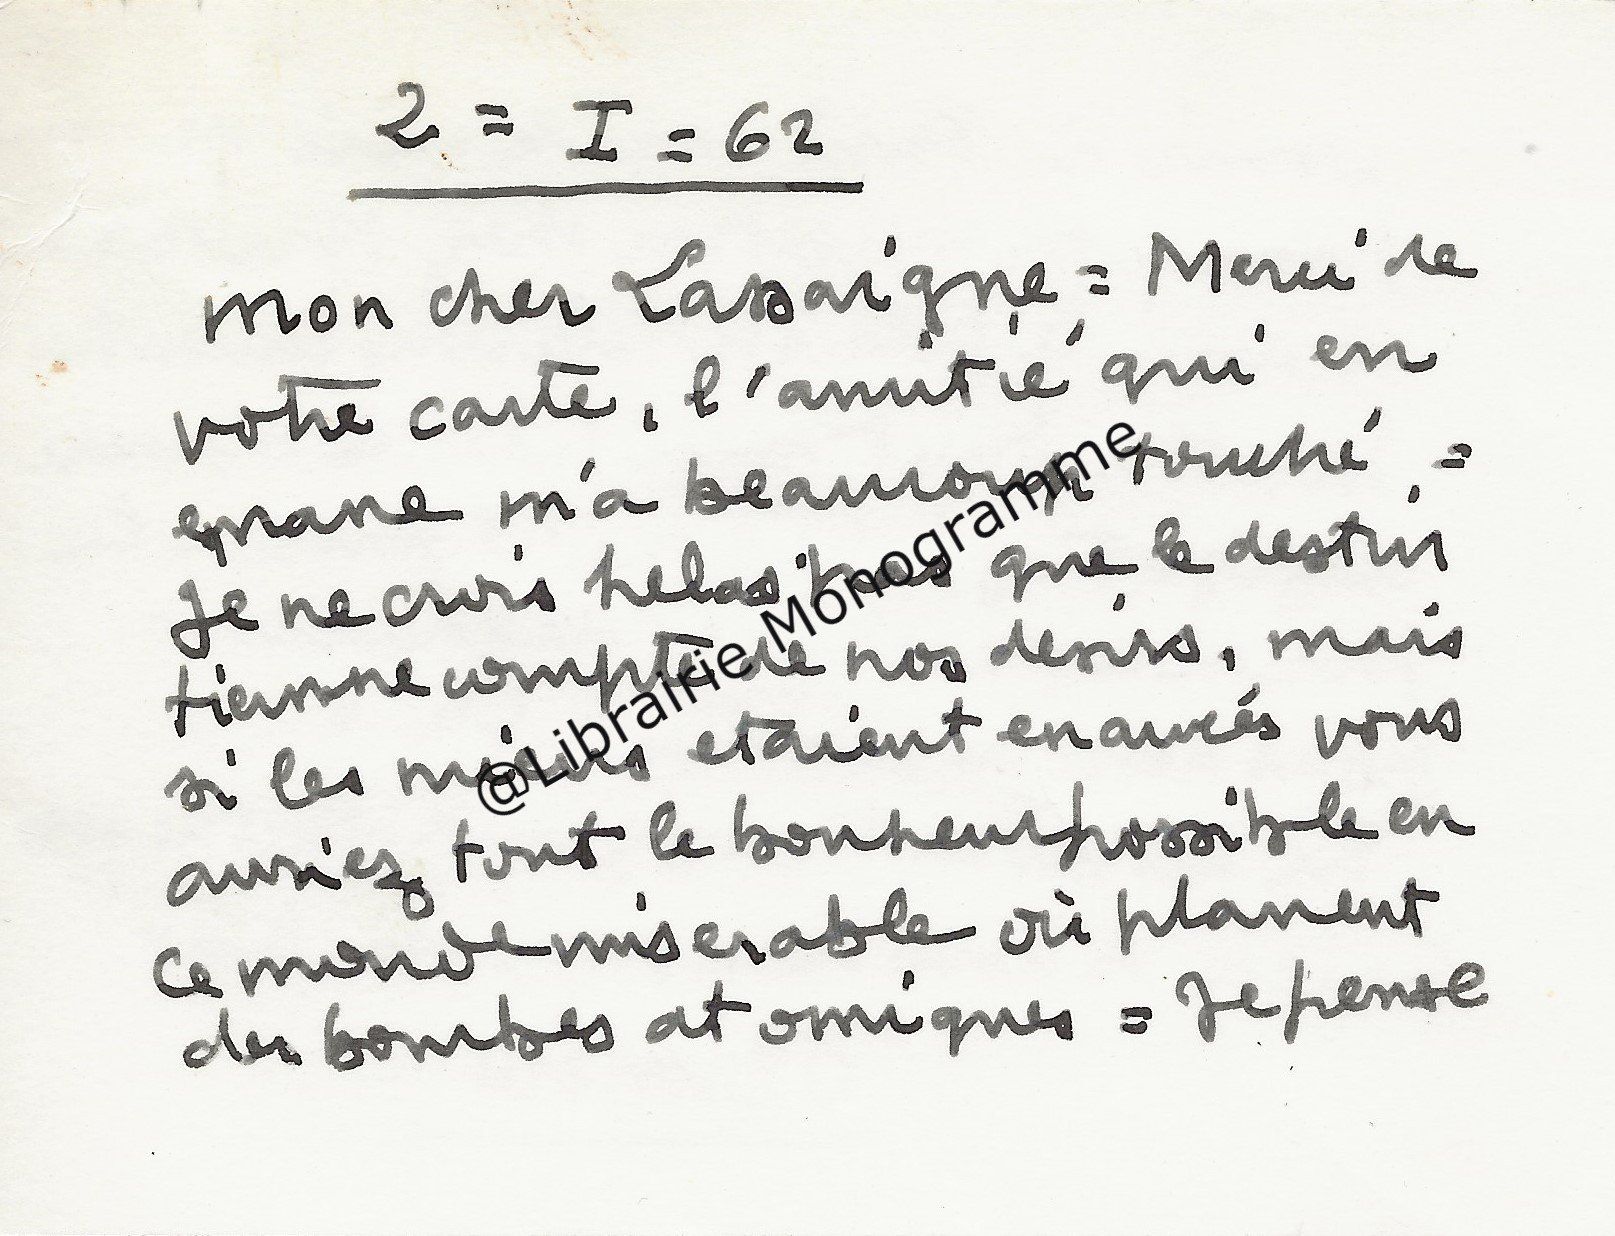 2 = I = 62
Mon cher Lassaigne = Merci de
votre carte, l'amitié qui en
emane m'a beaucoup touché =
Je ne crois helas pas que le destin
tienne compte de nos desirs, mais
si les miens etaient exaucés vous
auriez tout le bonheur possible en
ce monde miserable où planent
des bombes atomiques = Je pense
@Librairie Monogramme